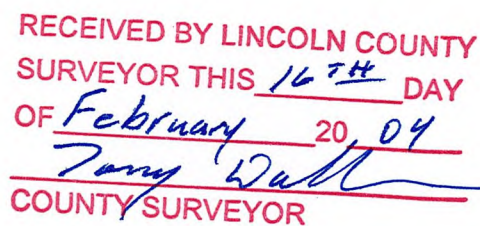 RECEIVED BY LINCOLN COUNTY
SURVEYOR THIS 16TH DAY
OF February 20 04
COUNTY SURVEYOR